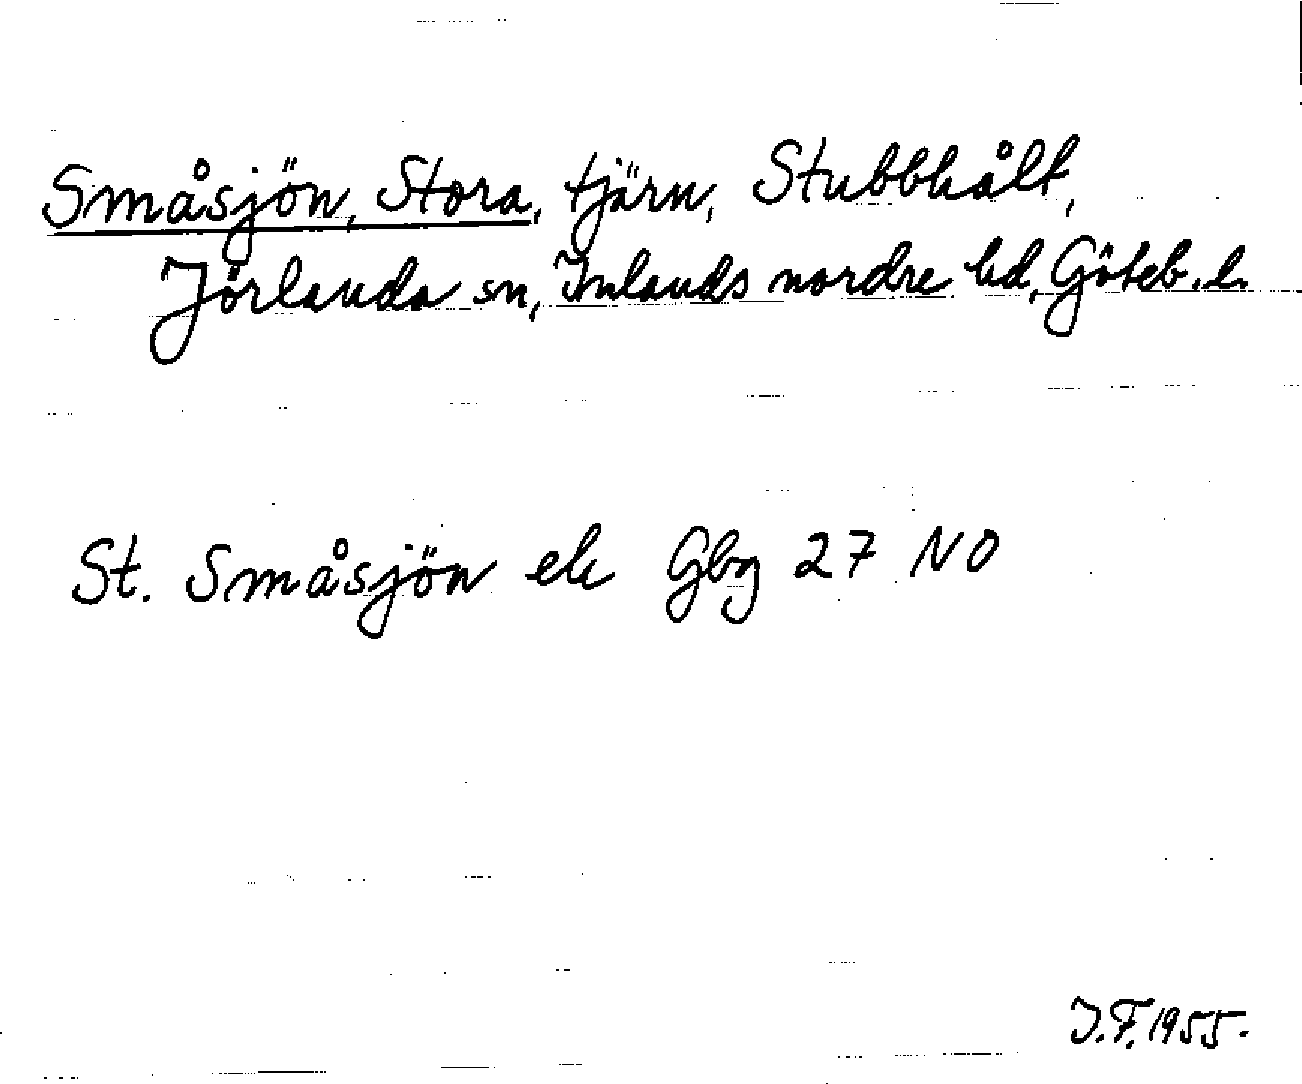 Småsjön, Stora, tjärn, Stubbhålt,
Jörlanda sn, Inlands nordre hd, Göteb. l.
St. Småsjön ek Gbg 27 NO
J.F. 1955.